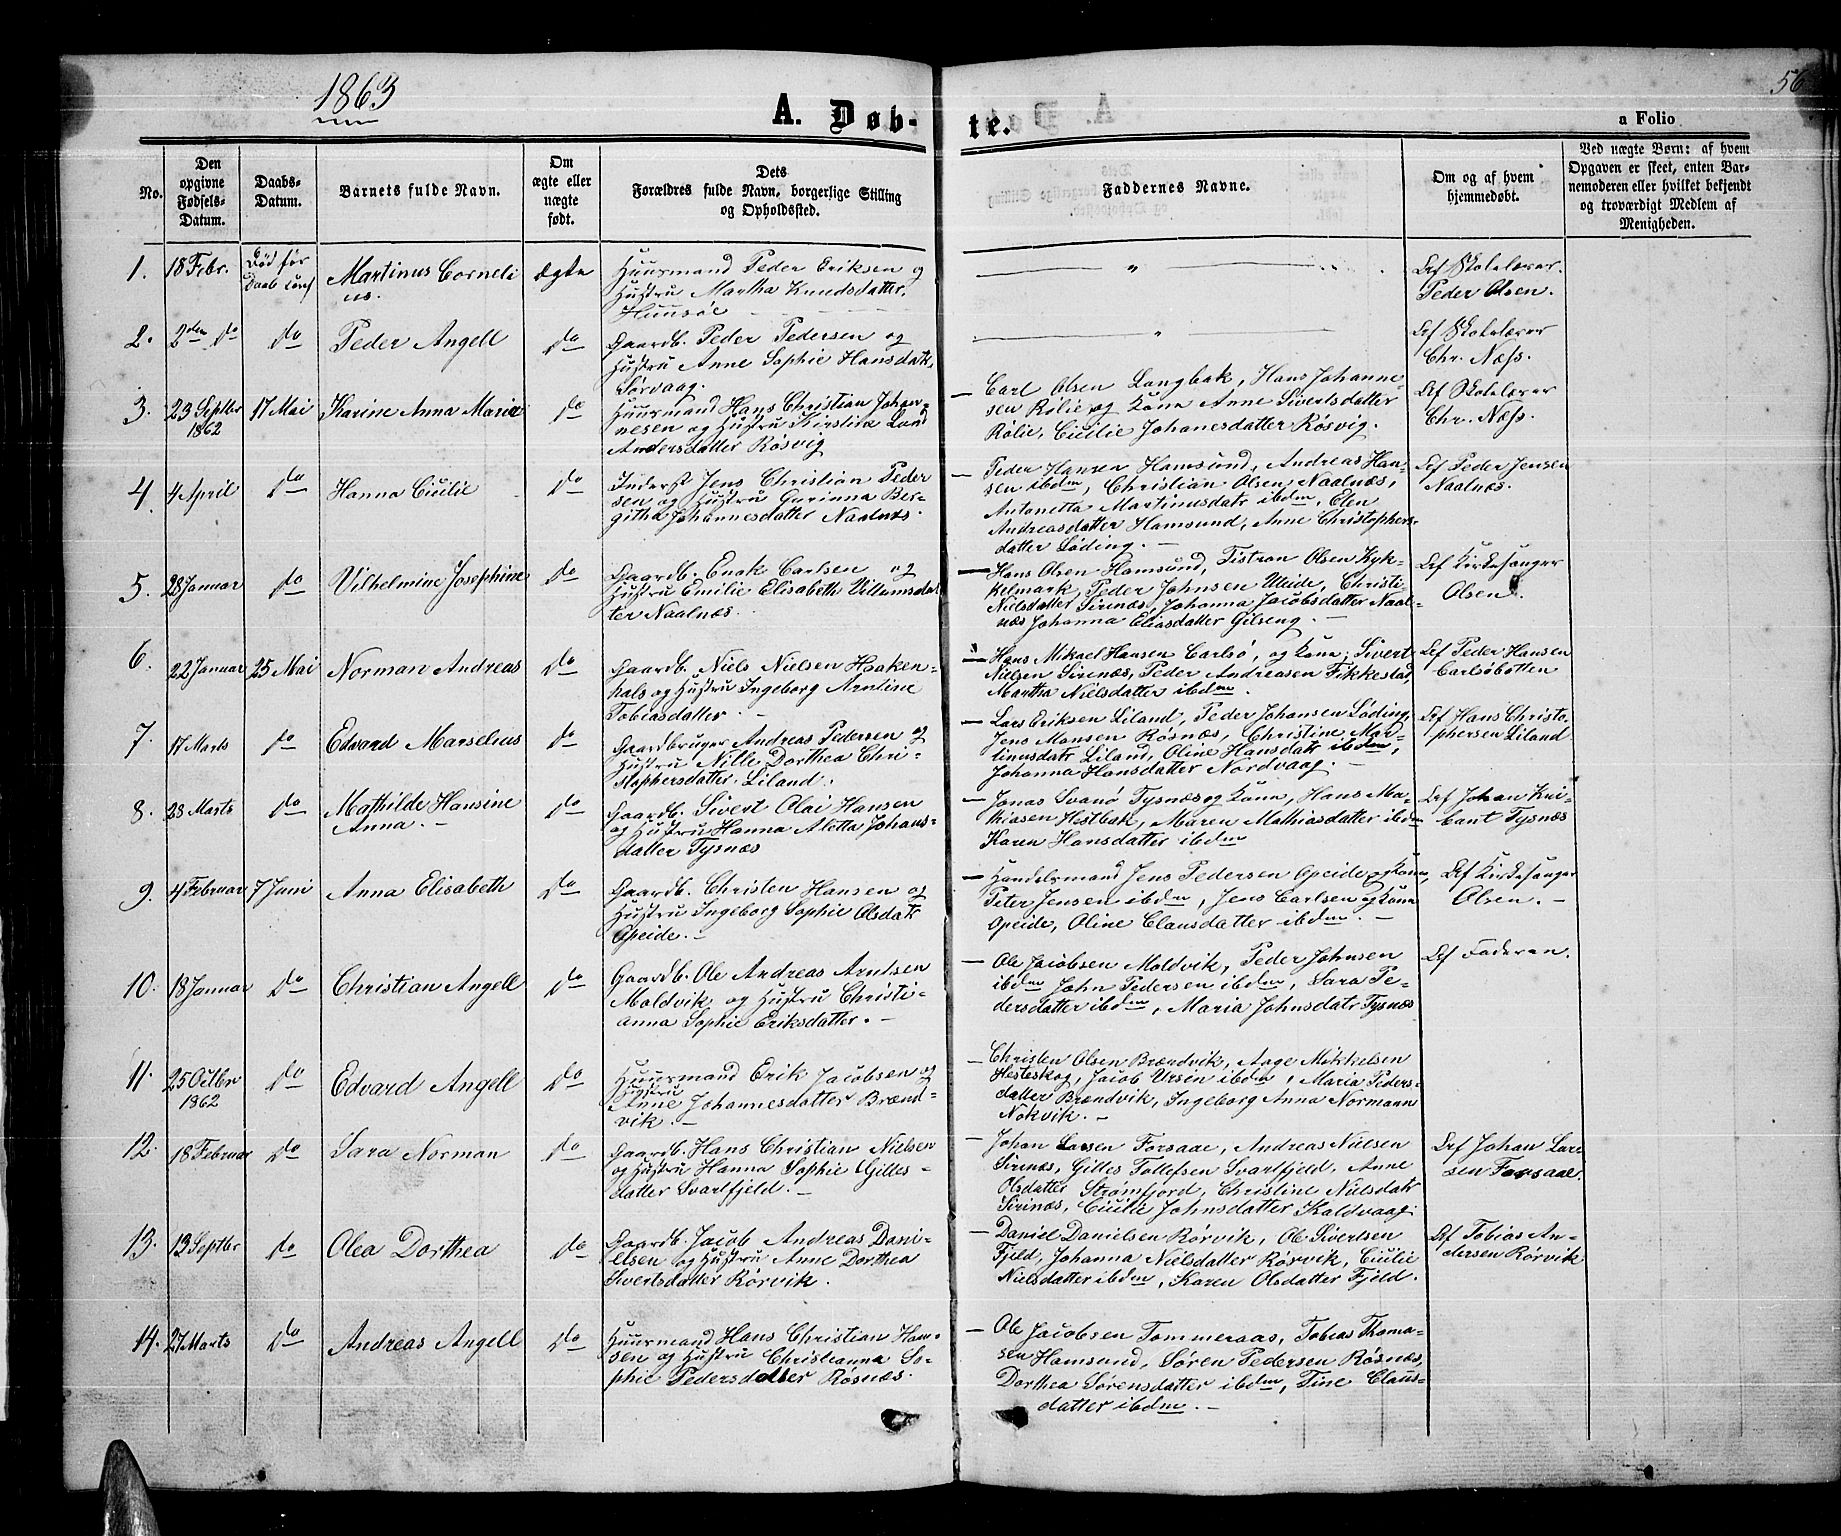 1863
56
A. Døb-
te.
a Folio
No.
Den
opgivne
Fødsels-
Datum.
Daabs-
Datum.
Barnets fulde Navn.
Om
ægte eller
uægte
født.
Dets
Forældres fulde Navn, borgerlige Stilling
og Opholdssted.
Faddernes Navne.
Om og af hvem
hjemmedøbt.
Ved uægte Børn: af hvem
Opgaven er skeet, enten Bar-
nemoderen eller hvilket bekjendt
og troværdigt Medlem af
Menigheden.
1.
18 Febr.
Død før
Daab conf
Martinus Corneli
us.
Ægte
Huusmand Peder Eriksen og
Hustru Martha Knudsdatter,
"
Def Skolelærer.
Peder Olsen.
2.
2den do
do
Peder Angell
do
Gaardb. Peder Pedersen og
Hustru Anne Sophie Hansdatr.
Sørvaag.
"
Def Skolelærer
Chr. Næss.
3.
23 Septbr
1862
17 Mai
Karine Anna Maria
do
Huusmand Hans Christian Johan-
nesen og Hustru Kirstine Lund
Andersdatter Røsvig
— Carl Olsen Langbak, Hans Johanne-
sen Rølie og Kona Anne Sivertsdatter
Rølie, Cicilie Johanesdatter Røsvig.
Def Skolelærer
Chr. Næss.
4.
4 April
do
Hanna Cicilie
do
Inderst Jens Christian Peder
sen og Hustru Corinna Ber-
githa Johannesdatter Naalnæs.
— Peder Hansen Hamsund, Andreas Han-
sen ibdm, Christian Olsen, Naalnæs,
Antonetta Martinusdatr ibdm, Elen
Andreasdatter Hamsund, Anne Christophers-
datter Løding. —
Def Peder Jensen
Naalnæs.
5.
28 Januar
do
Vilhelmine Josephine
do
Gaardb. Enok Carlsen og
Hustru Emilie Elisabeth Villumsdat
ter Naalnæs.
— Hans Olsen Hamsund, Tistran Olsen Kyk-
kelmark, Peder Johnsen Uleide, Christi
Nielsdatter Sirinæs, Johanna Jacobsdatter Naal-
næs Johanna Eliasdatter Gilseng. —
Def Kirkesanger
Olsen.
6.
22 Januar
25 Mai
Norman Andreas
do
Gaardb. Niels Nielsen Haaken-
hals og Hustru Ingeborg Arntine
Tobiasdatter. —
— Hans Mikael Hansen Carlsø, og Kona; Sivert
Nielsen Sirinæs, Peder Andreasen Fikkestad,
Martha Nielsdatter ibdm.
Def Peder Hansen
Carlsøbotten
7.
17 Marts
do
Edvard Marselius
do
Gaardbruger Andreas Pedersen og
Hustru Nille Dorthea Chri-
stophersdatter. Liland.
— Lars Eriksen Liland, Peder Johansen Løding,
Jens Monsen Røsnæs, Christine Mar-
tinusdatr Liland, Oline Hansdatr ibdm,
Johanna Hansdatter Nordvaag. —
Def Hans Christo-
phersen Liland
8.
28 Marts
do
Mathilde Hansine
Anna. —
do
Gaardb. Sivert Olai Hansen
og Hustru Hanna Aletta Johans-
datter Tysnæs
— Jonas Svanø Tysnæs og Kona, Hans Ma-
thiasen Hestbak, Maren Mathiasdatter ibdm
Karen Hansdatter ibdm
Def Johan Kni-
Tysnæs
9.
4 Februar
7 Juni
Anna Elisabeth
do
Gaardb. Christen Hansen og
Hustru Ingeborg Sophie Olsdatr
Opeide. —
— Handelsmand Jens Pedersen Opeide og Kona,
Peter Jensen ibdm, Jens Carlsen og Kona
Opeide, Oline Clausdatter ibdm. —
Def Kirkesanger
Olsen. —
10.
18 Januar
do
Christian Angell
do
Gaardb. Ole Andreas Arntsen
Moldvik og Hustru Christi-
anna Sophie Eriksdatter. —
— Ole Jacobsen Moldvik, Peder Johnsen
ibdm John Pedersen ibdm, Sara Pe-
dersdatter ibdm, Maria Johnsdatr Tysnæs
Def Faderen.
11.
25 Octbr
1862
do
Edvard Angell
do
Huusmand Erik Jacobsen og
Hustru
Anne Johannesdatter Brænd-
vik. —
— Christen Olsen Brændvik, Aage Mikkelsen
Hesteskog, Jacob Ursen ibdm, Maria Peders-
datter Brændvik, Ingeborg Anna Normann
Nokvik. —
12.
18 Februar
do
Sara Norman
do
Gaardb. Hans Christian Nielsen
og Hustru Hanna Sophie Gilles-
datter Svartfjeld. —
— Johan Larsen Forsaae, Andreas Nielsen
Sirinæs, Gilles Tollefsen Svartfjeld, Anne
Olsdatter Strømfjord, Christine Nielsdatr
Sirinæs, Cicilie Johnsdatter Kaldvaag.
Def Johan Lar-
sen Forsaae.
13.
13 Septbr
do
Olea Dorthea
do
Gaardb. Jacob Andreas Dani-
elsen og Hustru Anne Dorthea
Sivertsdatter Rørvik.
— Daniel Danielsen Rørvik, Ole Sivertsen
Fjeld, Johanna Nielsdatter Rørvik, Cicilie
Nielsdatter ibdm, Karen Olsdatter Fjeld.
Def Tobias An-
dersen Rørvik
14.
27 Marts
do
Andreas Angell
do
Huusmand Hans Christian Han-
sen og Hustru Christianna So-
phie Pedersdatter Røsnæs.
— Ole Jacobsen Tommeraas, Tobias Thoma-
sen Hamsund, Søren Pedersen Røsnæs,
Dorthea Sørensdatter ibdm, Tine Claus-
datter ibdm. —